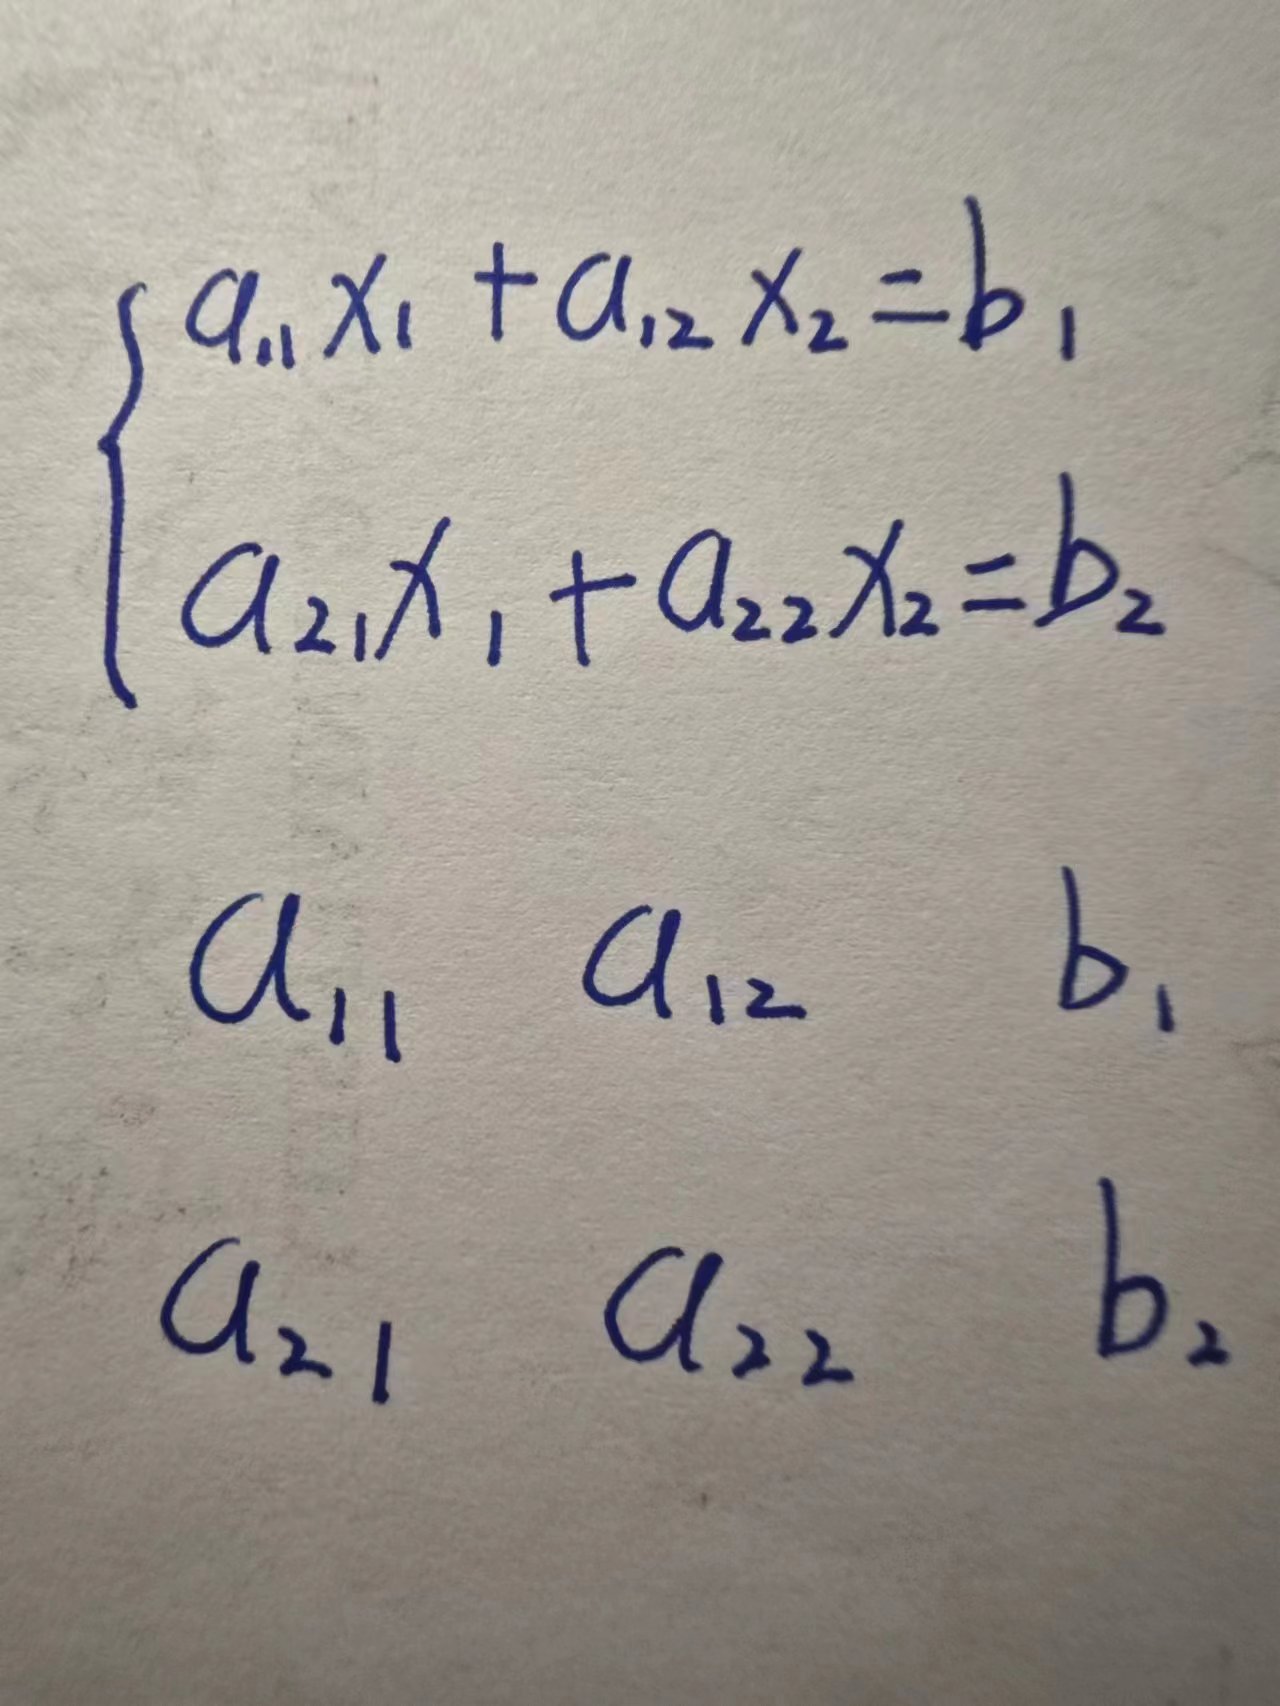 { a₁₁x₁ + a₁₂x₂ = b₁
a₂₁x₁ + a₂₂x₂ = b₂
a₁₁ a₁₂ b₁
a₂₁ a₂₂ b₂